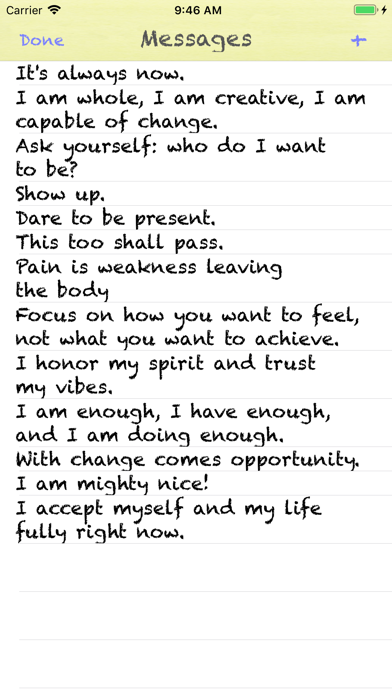 Carrier 9:46 AM
Done Messages +
It's always now.
I am whole, I am creative, I am
capable of change.
Ask yourself: who do I want
to be?
Show up.
Dare to be present.
This too shall pass.
Pain is weakness leaving
the body
Focus on how you want to feel,
not what you want to achieve.
I honor my spirit and trust
my vibes.
I am enough, I have enough,
and I am doing enough.
With change comes opportunity.
I am mighty nice!
I accept myself and my life
fully right now.